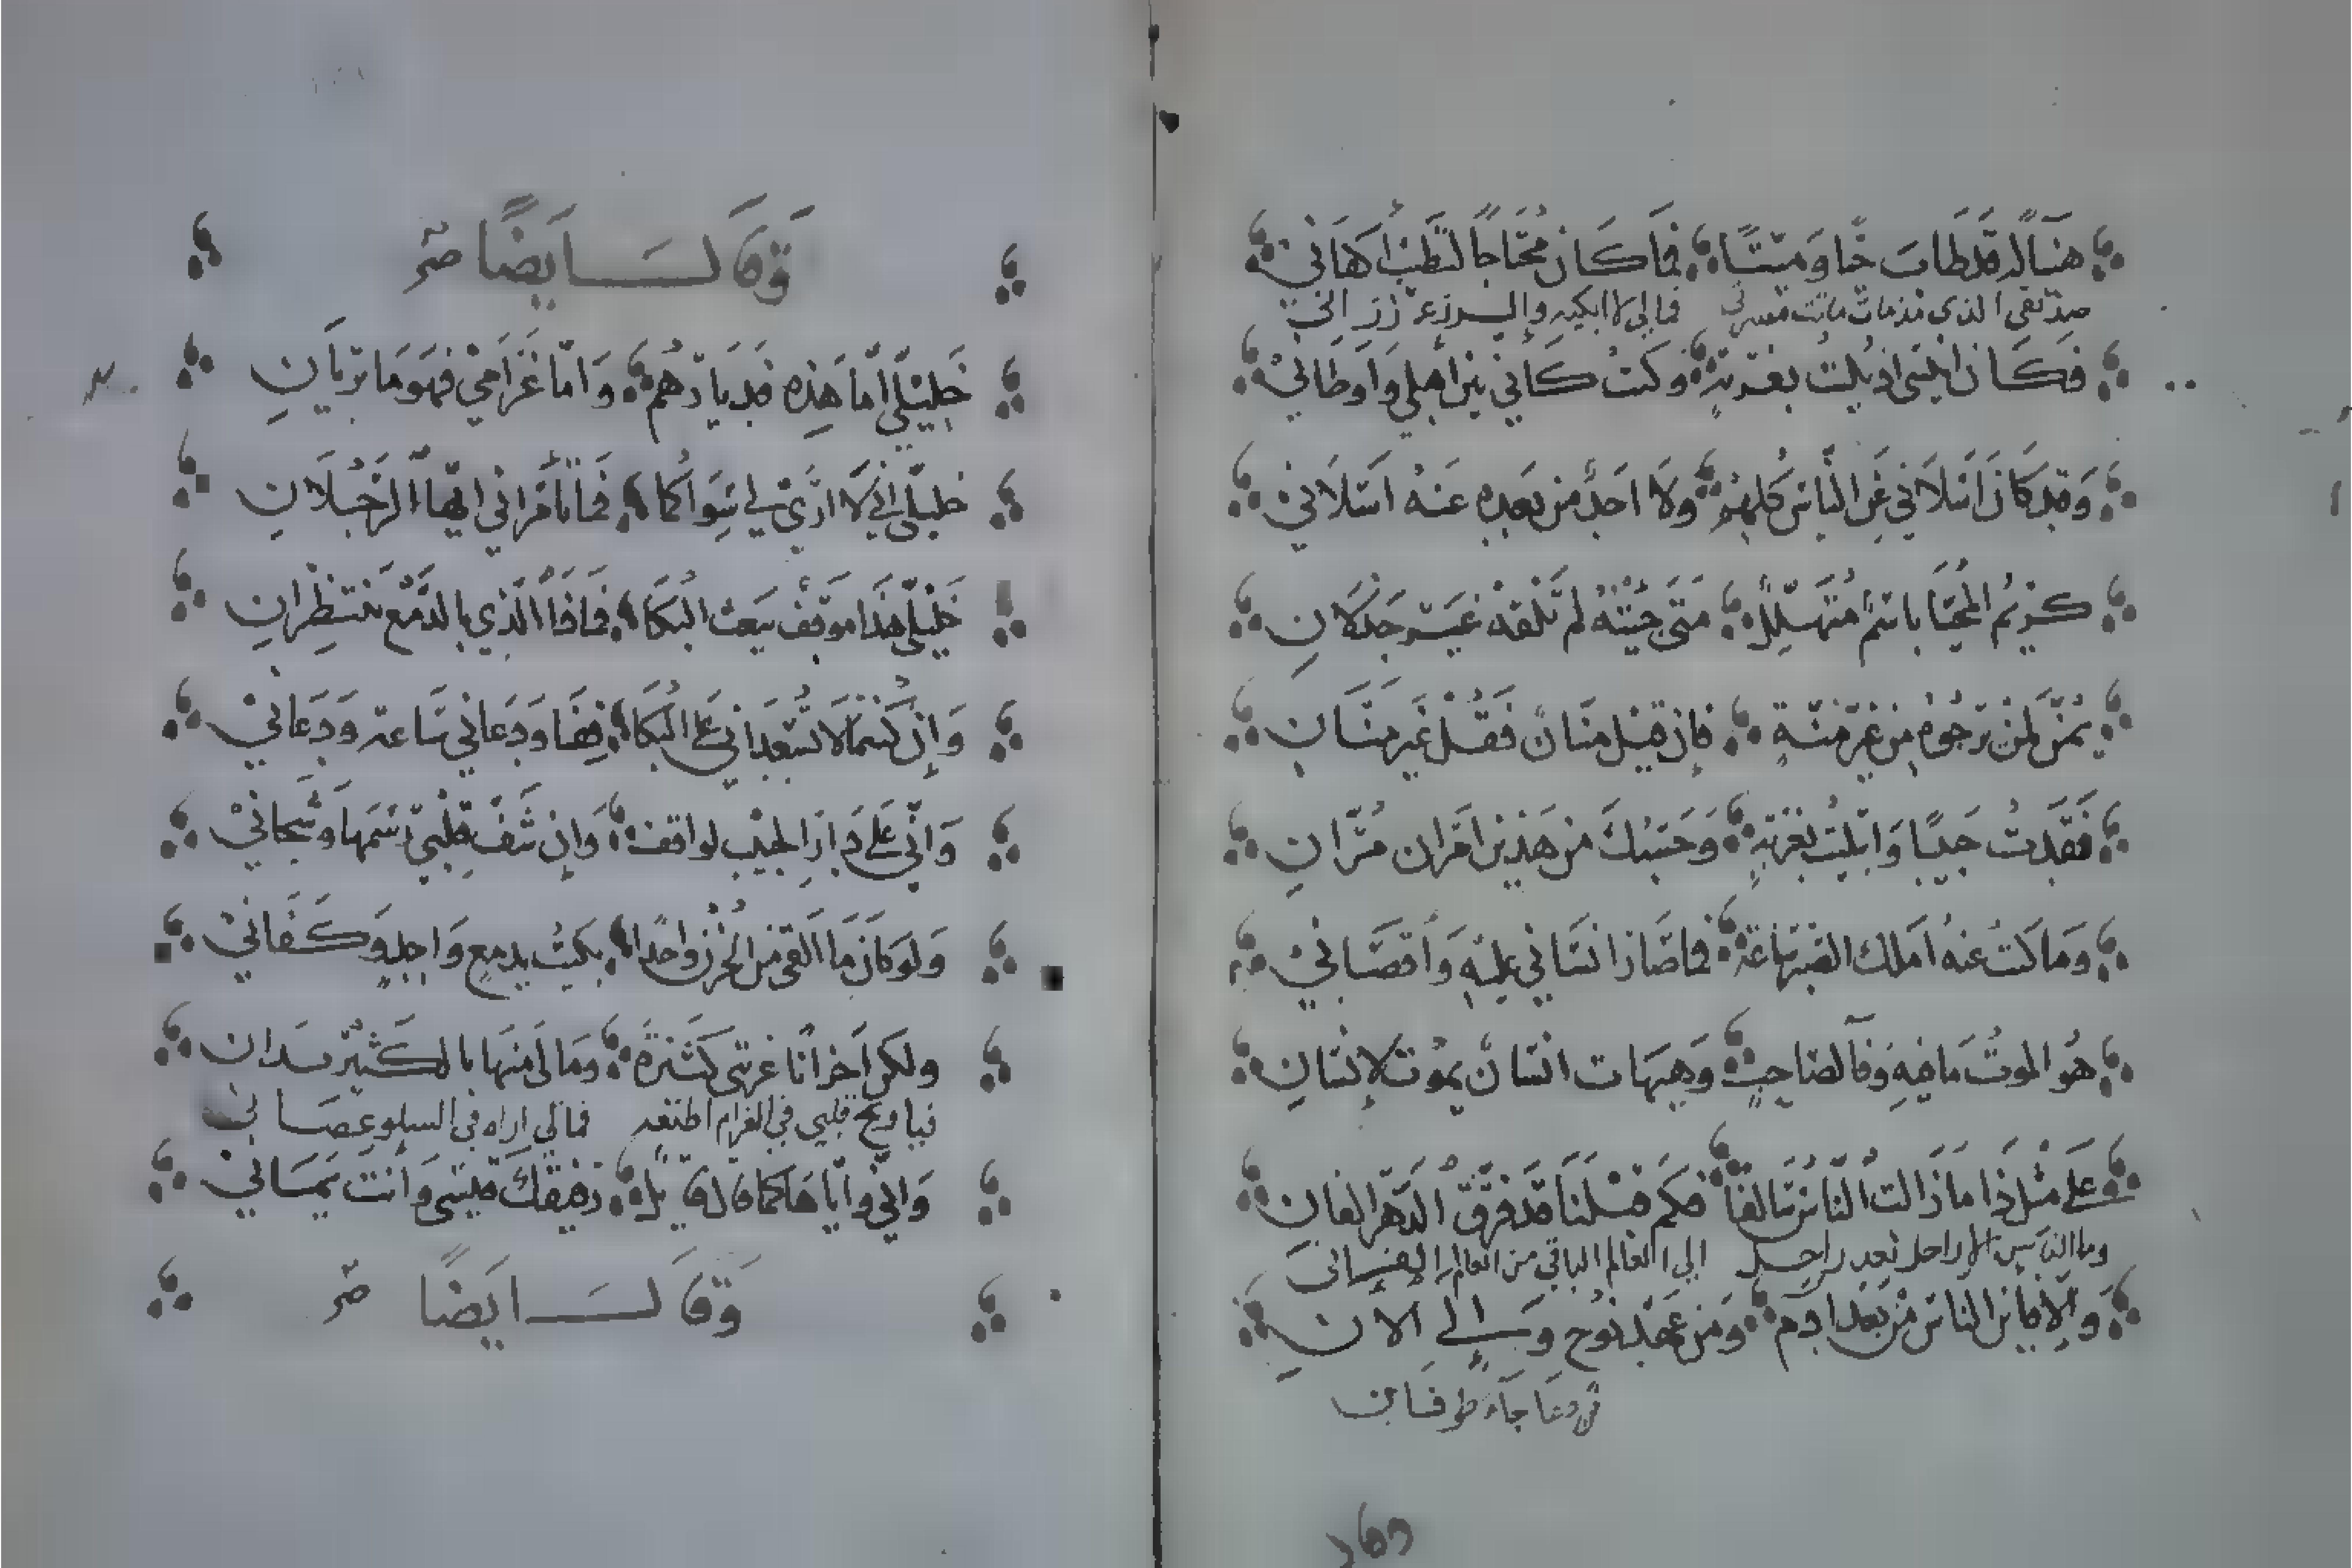 هنيئا له قد طاب حيا وميتا فما كان محتاجا لتطييب اكفاني
صديقي الذي مذ مات ماتت مسرتي فمالي لا ابكيه والرزء رزآني
فكان انيسي اذ بليت بغربة وكنت كاني بين اهلي واوطاني
وقد كان اسلاني عن الناس كلهم ولا احد من بعده عنه اسلاني
كريم المحيا باسم متهلل متى جئته لم تلقه غير جذلان
يمن لمن يرجوه من غير منة فان قيل منان فقل غير منان
فقدت حبيبا وابتليت بغربة وحسبك من هذين امران مران
وما كنت عنه املك الصبر ساعة فما صار انساني عليه واقصاني
هو الموت ما فيه وفآ لصاحب وهيهات انسان يموت لانسان
على مثل ذا ما زالت الناس سالفا فكم قبلنا قد فرق الدهر الفان
وما الناس الا راحل بعد راحل الى العالم الباقي من العالم الفاني
والا فاين الناس من بعد ادم ومن عهد نوح والى الآن
جاء طوفان
وقال ايضا
خليلي اما هذه فديارهم واما غرامي فهو ما تريان
خليلي اني لا ارى لي سواكما فما تامراني ايها الرجلان
خليلي هذا موقف يبعث البكا فماذا الذي بالدمع تنتظران
وان كنتما لا تسعداني على البكا قفا ودعاني ساعة ودعاني
واني على دار الحبيب لواقف وان شف قلبي رسمها وشجاني
ولو كان ما القى من الحزن واحدا بكيت بدمع واحد وكفاني
ولكن احزانا عرتني كثيرة ومالي منها بالكثير يدان
فيا ويح قلبي في الغرام اطعته فمالي اراه في السلو عصاني
واني واياها كما قال قايل رفيقك قيسي وانت يماني
وقال ايضا